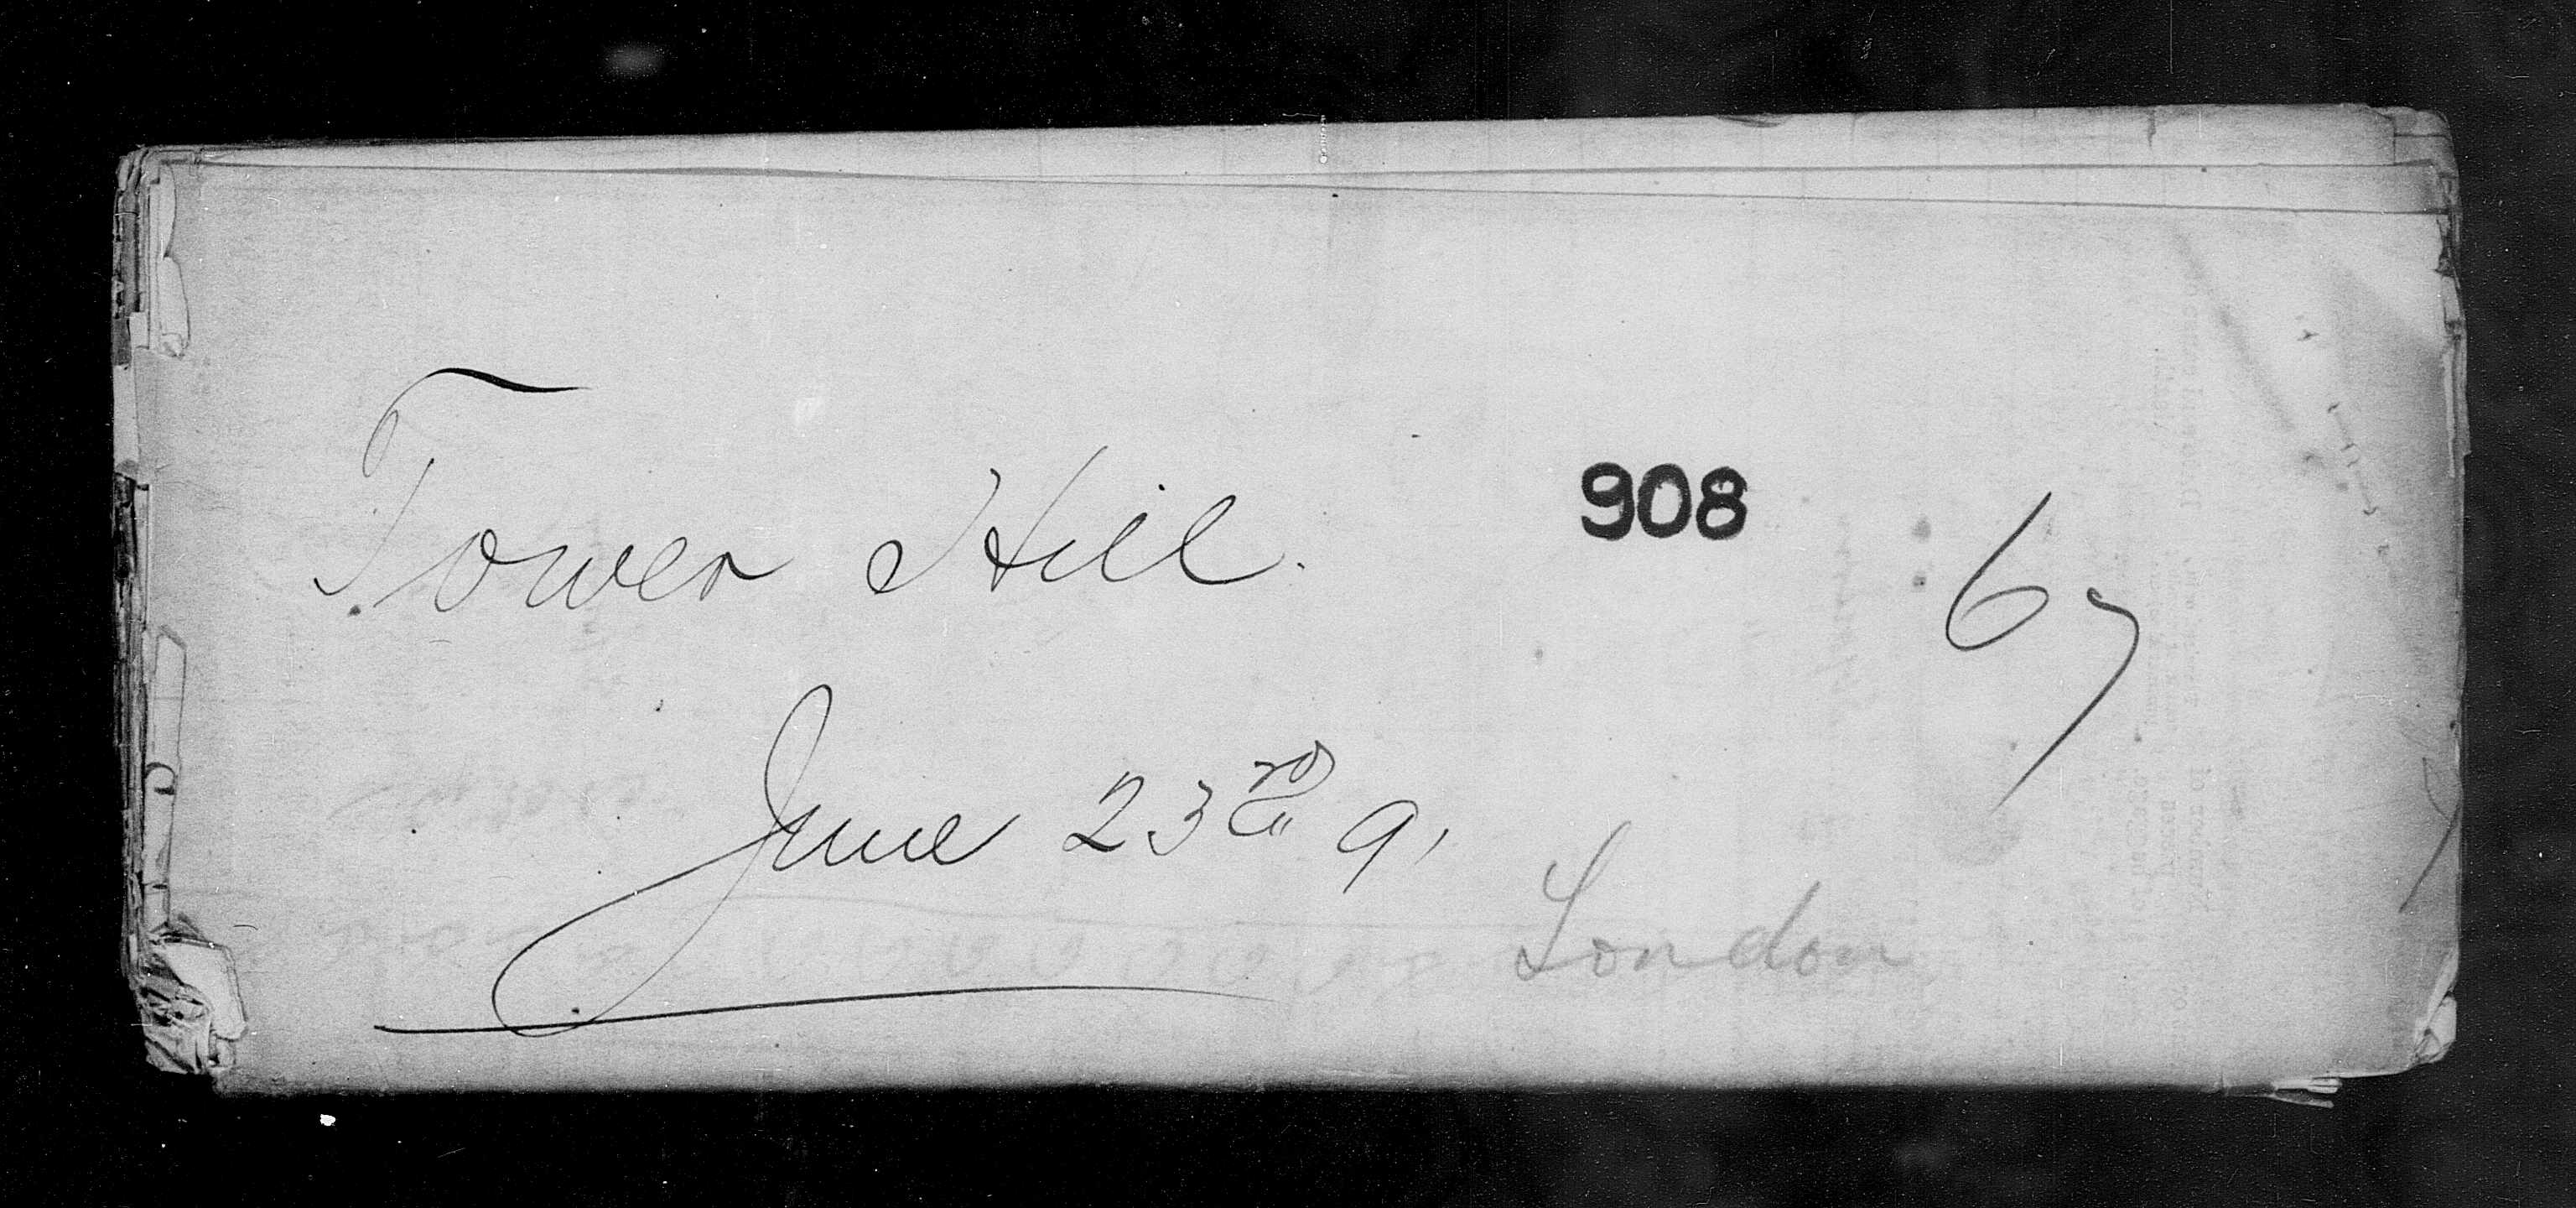 Tower Hill.
908
67
June 23rd 91
London